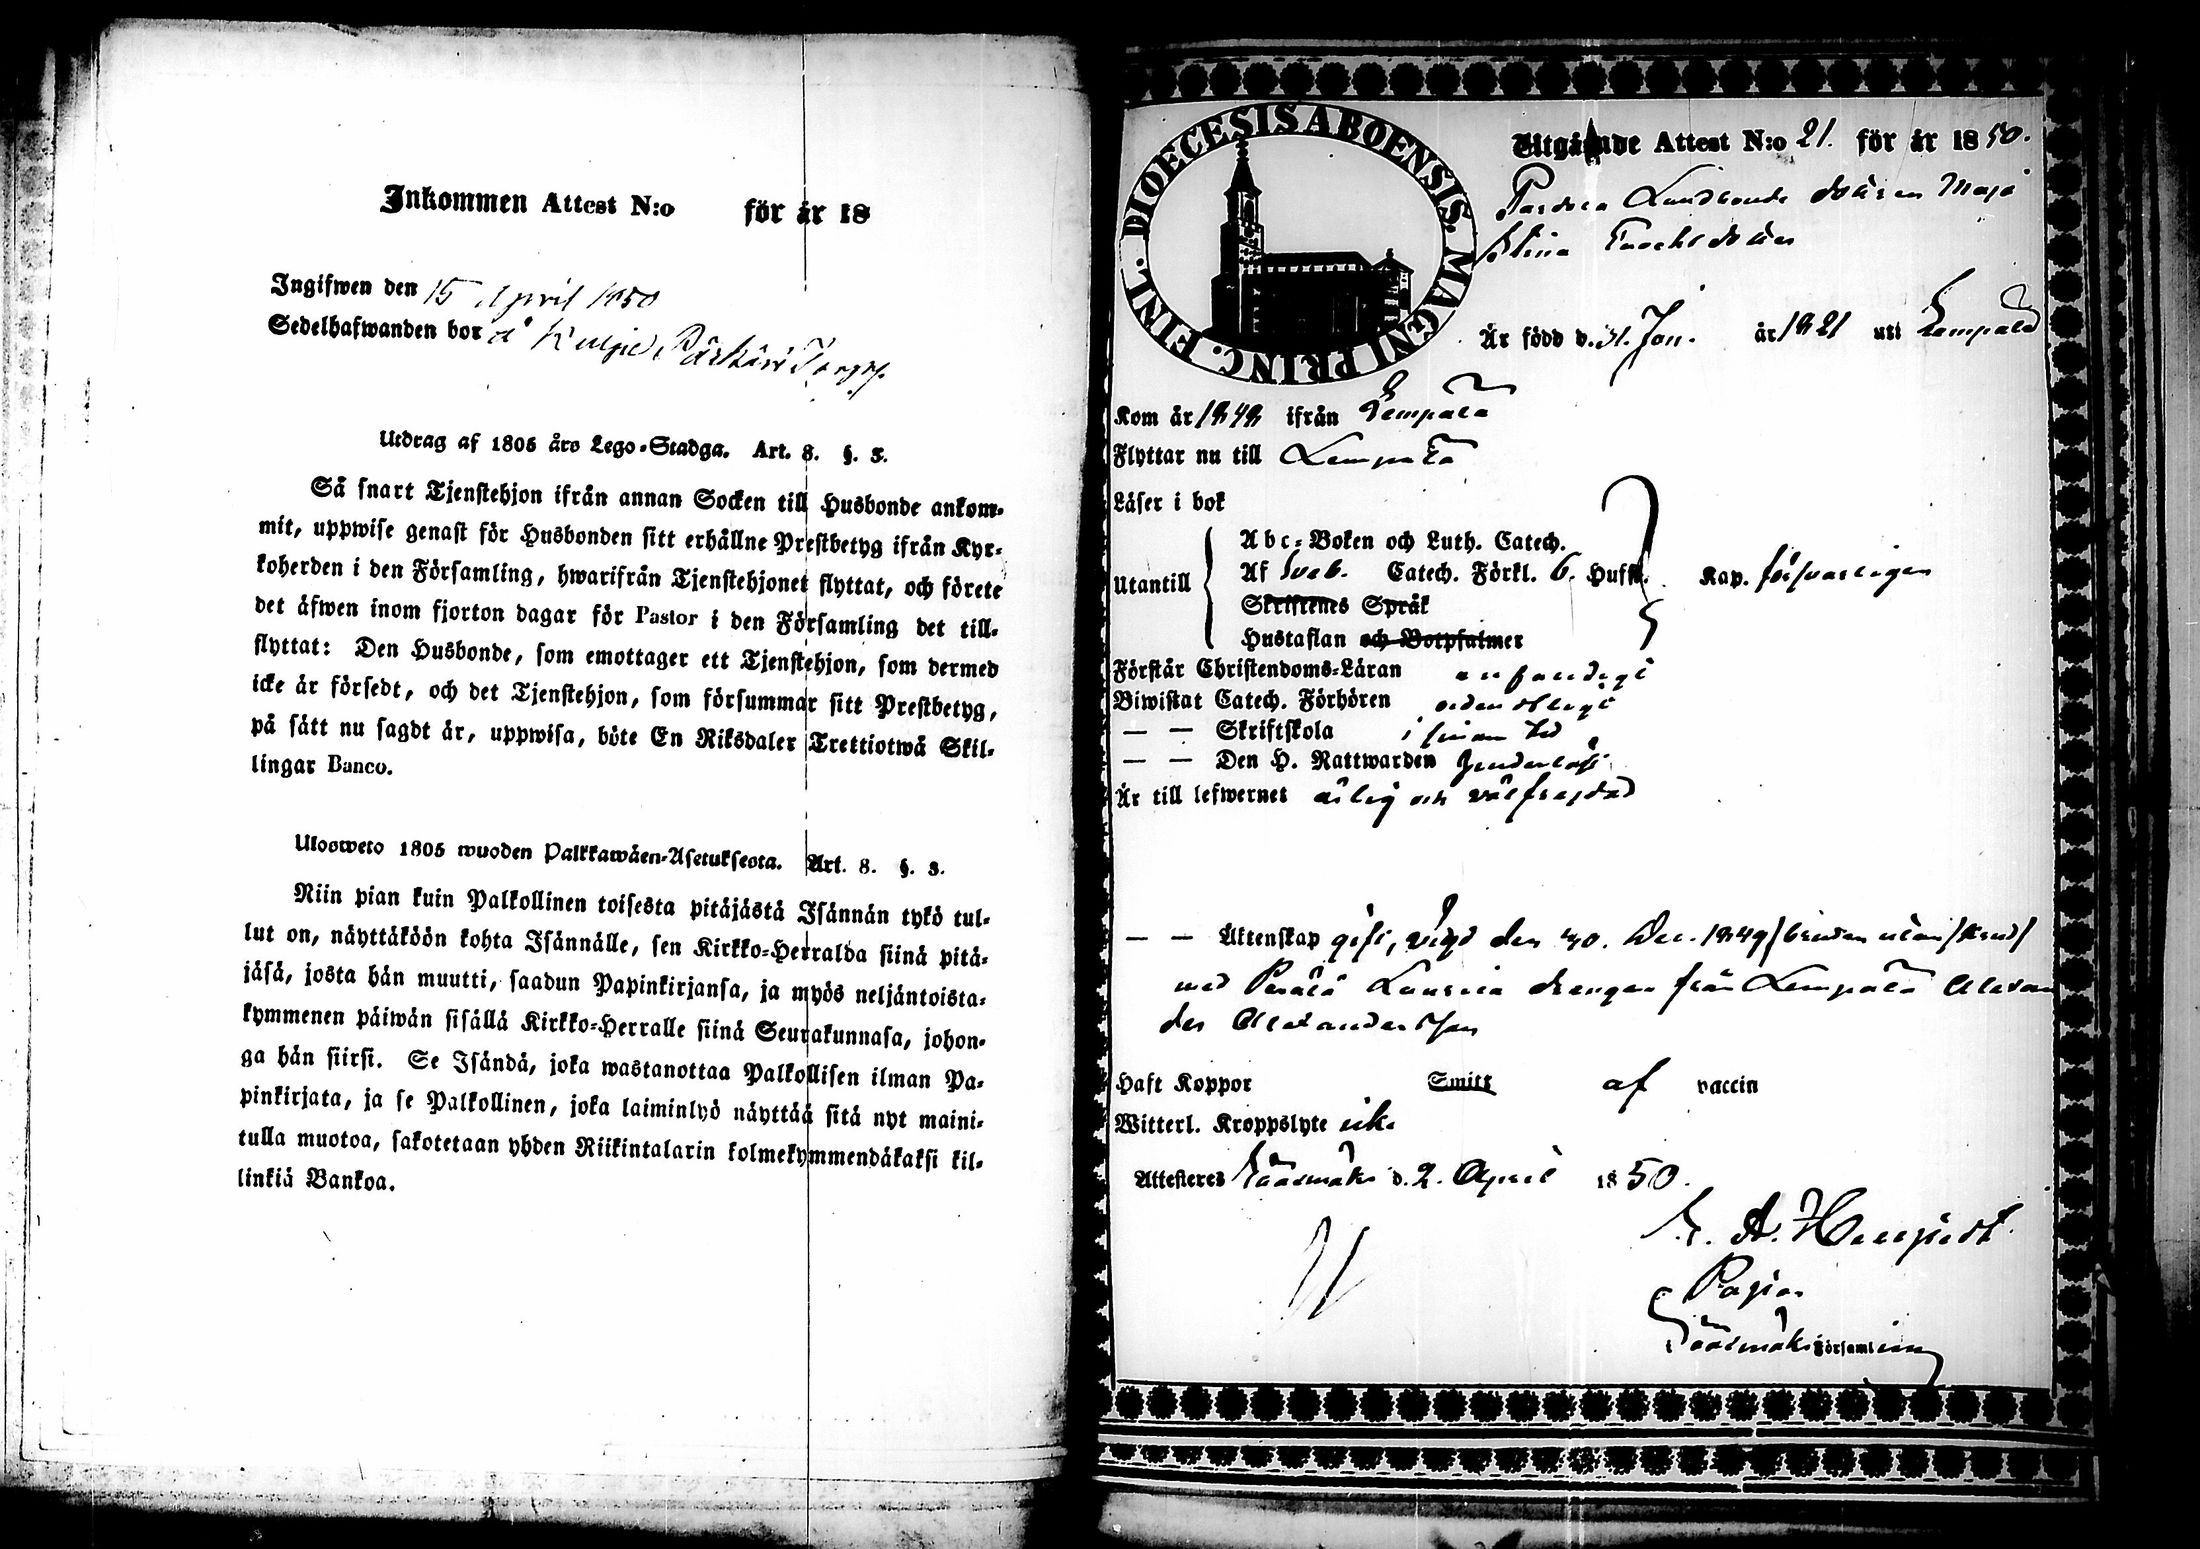 Inkommen Attest N:o för år 18
Ingifwen den 15 April 1850
Sedelhafwanden bor å Kulju, Pärkäri Torp
Utdrag af 1805 års Lego-Stadga. Art. 8. §. 3.
Så snart Tjenstehjon ifrån annan Socken till Husbonde ankom-
mit, uppwise genast för Husbonden sitt erhållne Prestbetyg ifrån Kyr-
koherden i den Församling, hwarifrån Tjenstehjonet flyttat, och förete
det äfwen inom fjorton dagar för Pastor i den Församling det till-
flyttat: Den Husbonde, som emottager ett Tjenstehjon, som dermed
icke är försedt, och det Tjenstehjon, som försummar sitt Prestbetyg,
på sätt nu sagdt är, uppwisa, böte En Riksdaler Trettiotwå Skil-
lingar Banco.
Ulosweto 1805 wuoden Palkkawäen-Asetuksesta. Art. 8. §. 3.
Niin pian kuin Palkollinen toisesta pitäjästä Isännän tykö tul-
lut on, näyttäköön kohta Isännälle, sen Kirkko-Herralda siinä pitä-
jäsä, josta hän muutti, saadun Papinkirjansa, ja myös neljäntoista-
kymmenen päiwän sisällä Kirkko-Herralle siinä Seurakunnasa, johon-
ga hän siirsi. Se Isändä, joka wastanottaa Palkollisen ilman Pa-
pinkirjata, ja se Palkollinen, joka laiminlyö näyttää sitä nyt maini-
tulla muotoa, sakotetaan yhden Riikintalarin kolmekymmendäkaksi kil-
linkiä Bankoa.
DIOECESIS ABOENSIS. MAGNI PRINC. FINL.
Utgående Attest N:o 21. för år 1850.
Landbonde dottren Maja
Stina Enochsdotter
Är född d. 31. Jan. år 1821 uti Lempälä
Kom år 1848 ifrån Lempälä
Flyttar nu till Lempälä
Läser i bok
Utantill
Abc-Boken och Luth. Catech.
Af Sveb. Catech. Förkl. 6. Hufst. Kap. försvarligen
Skriftenes Språk
Hustaflan och Botpsalmer
Förstår Christendoms-Läran enfaldigt
Biwistat Catech. Förhören ordentligt
— — Skriftskola i sinom tid
— — Den H. Nattwarden
Är till lefwernet ärlig och välfrejdad
— — Äktenskap gift, vigd den 30. Dec. 1849
med Perälä drängen från Lempälä Alexan
der Alexandersson
Haft Koppor Smitt af vaccin
Witterl. Kroppslyte ick.
Attesteres Sääxmäki d. 2. April 1850.
Pastor
Sääxmäki Församling